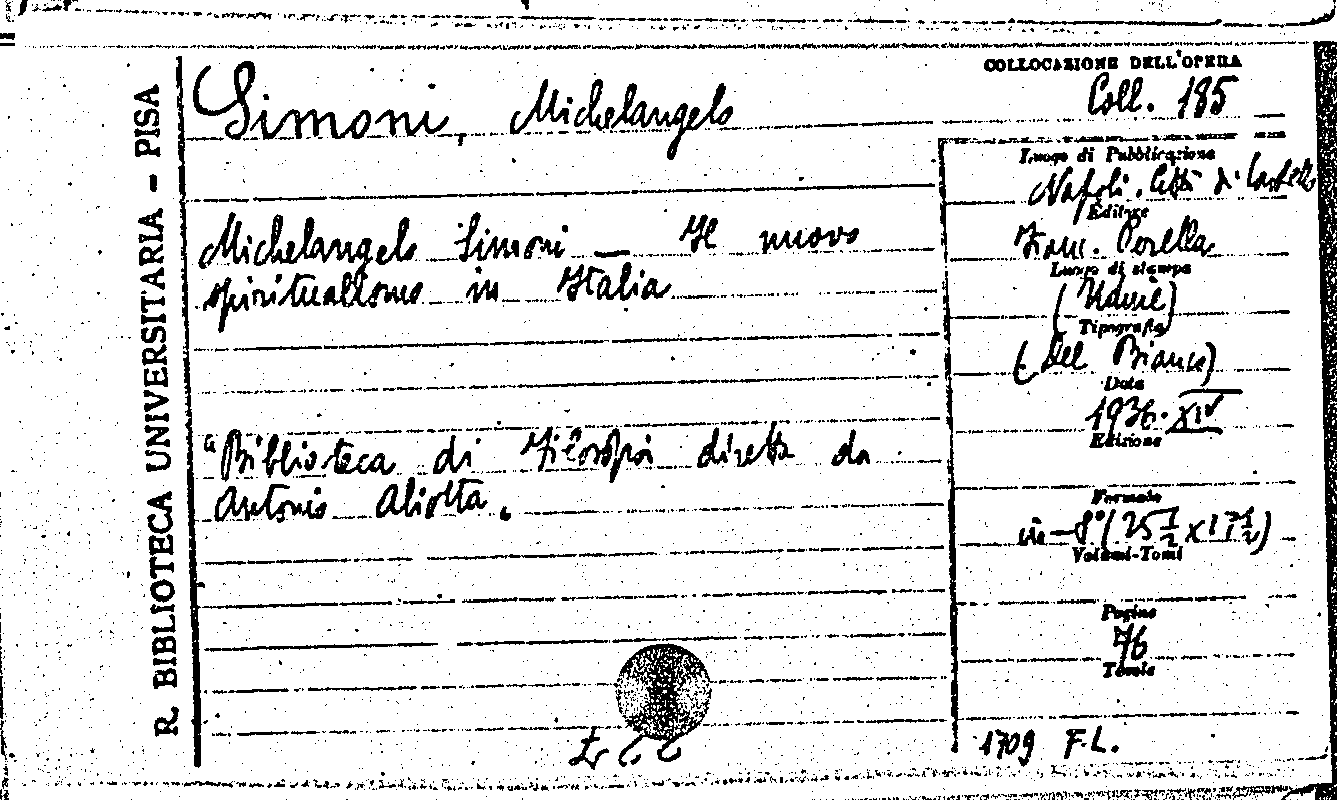 R. BIBLIOTECA UNIVERSITARIA – PISA
Simoni, Michelangelo
COLLOCAZIONE DELL'OPERA
Coll. 185
Luogo di Pubblicazione
Napoli. Città di Castello
Editore
Franc. Perella
Luogo di stampa
(Udine)
Tipografia
(Del Bianco)
Data
1936-XIV
Edizione
Formato
in-8° (25 1/2 x 17 1/2)
Volumi-Tomi
Pagine
76
Tomie
1709 F.L.
Michelangelo Simoni — Il nuovo
spiritualismo in Italia
"Biblioteca di Filosofia diretta da
Antonio Aliotta.